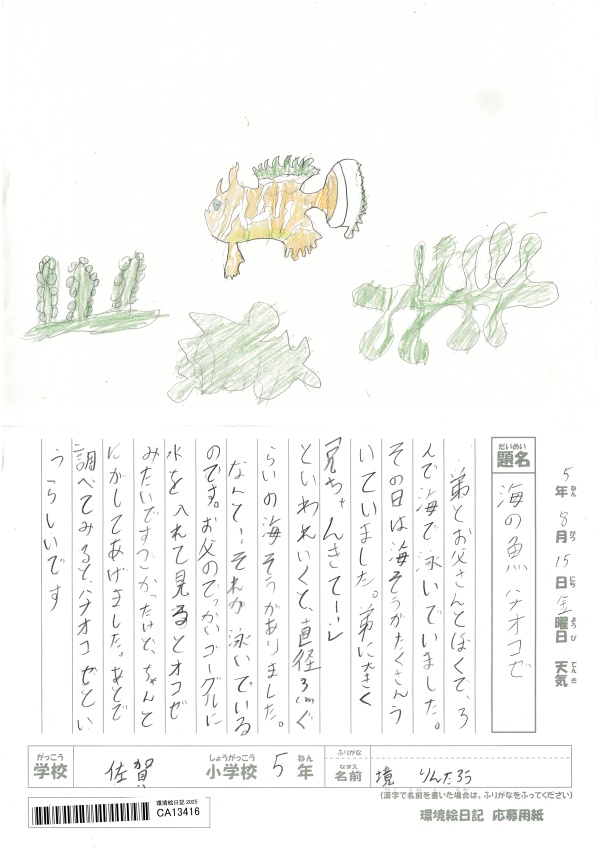 5年 8月 15日 金曜日 天気
ねん がつ にち ようび てんき
だいめい
題名
海の魚 ハナオコゼ
弟とお父さんとぼくで、3
んで海で泳いでいました。
その日は海そうがたくさんう
いていました。弟に大きく
「兄ちゃんきてー!」
といわれいくと、直径3cmぐ
らいの海そうがありました。
なんと!それが泳いでいる
のです。お父のでっかいゴーグルに
水を入れて見るとオコゼ
みたいですごかったけど、ちゃんと
にがしてあげました。あとで
調べてみると、ハナオコゼとい
うらしいです
がっこう
学校
佐賀
しょうがっこう
小学校
5
ねん
年
ふりがな
なまえ
名前
境 りんたろう
(漢字で名前を書いた場合は、ふりがなをふってください)
環境絵日記 2025
CA13416
環境絵日記 応募用紙